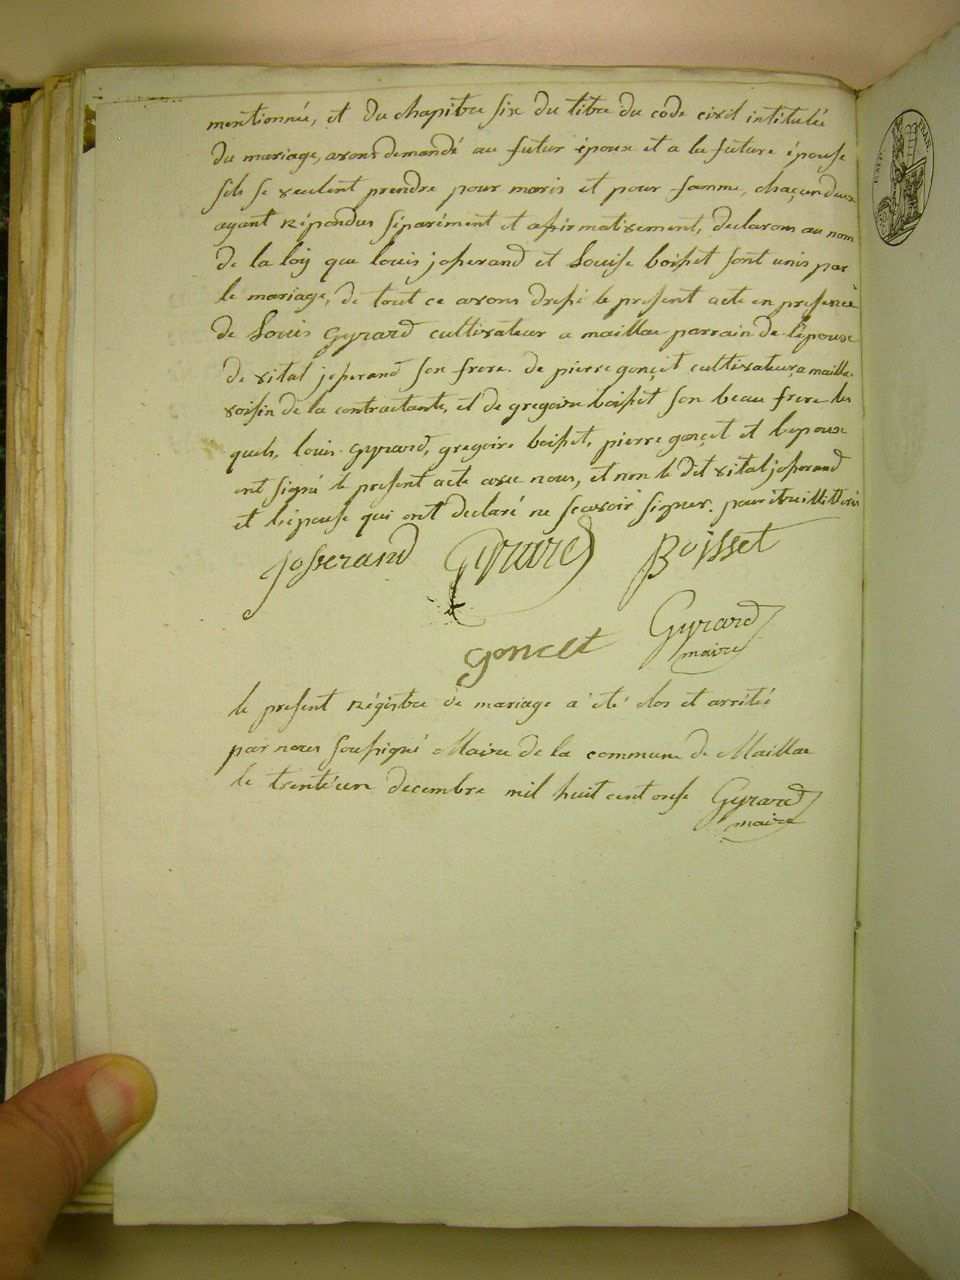 mentionnée, et du chapitre six du titre du code civil intitulé
du mariage, avons demandé au futur époux et a la future épouse
sils se veulent prendre pour maris et pour famme, chaçun deux
ayant répondus séparément et afirmativement, declarons au nom
de la loy que louis josserand et Louise boisset sont unis par
le mariage, de tout ce avons dressé le present acte en presence
de Louis Gyrard cultivateur a maillac parrain de l'épouse
de vital josserand son frere. de pierre gonçet cultivateur a maillac
voisin de la contractante, et de gregoire boisset son beau frere les
quels, louis gyrard, gregoire boisset, pierre gonçet et lepoux
ont signé le present acte avec nous, et non le dit vital josserand
et lépouse qui ont declaré ne scavoir signer. pour être illitérés
Josserand Gyrard Boisset
goncet Gyrard
maire
le present régistre de mariage a été clos et arrêtée
par nous soussigné Maire de la commune de Maillac
le trente'un decembre mil huit cent onse Gyrard
maire